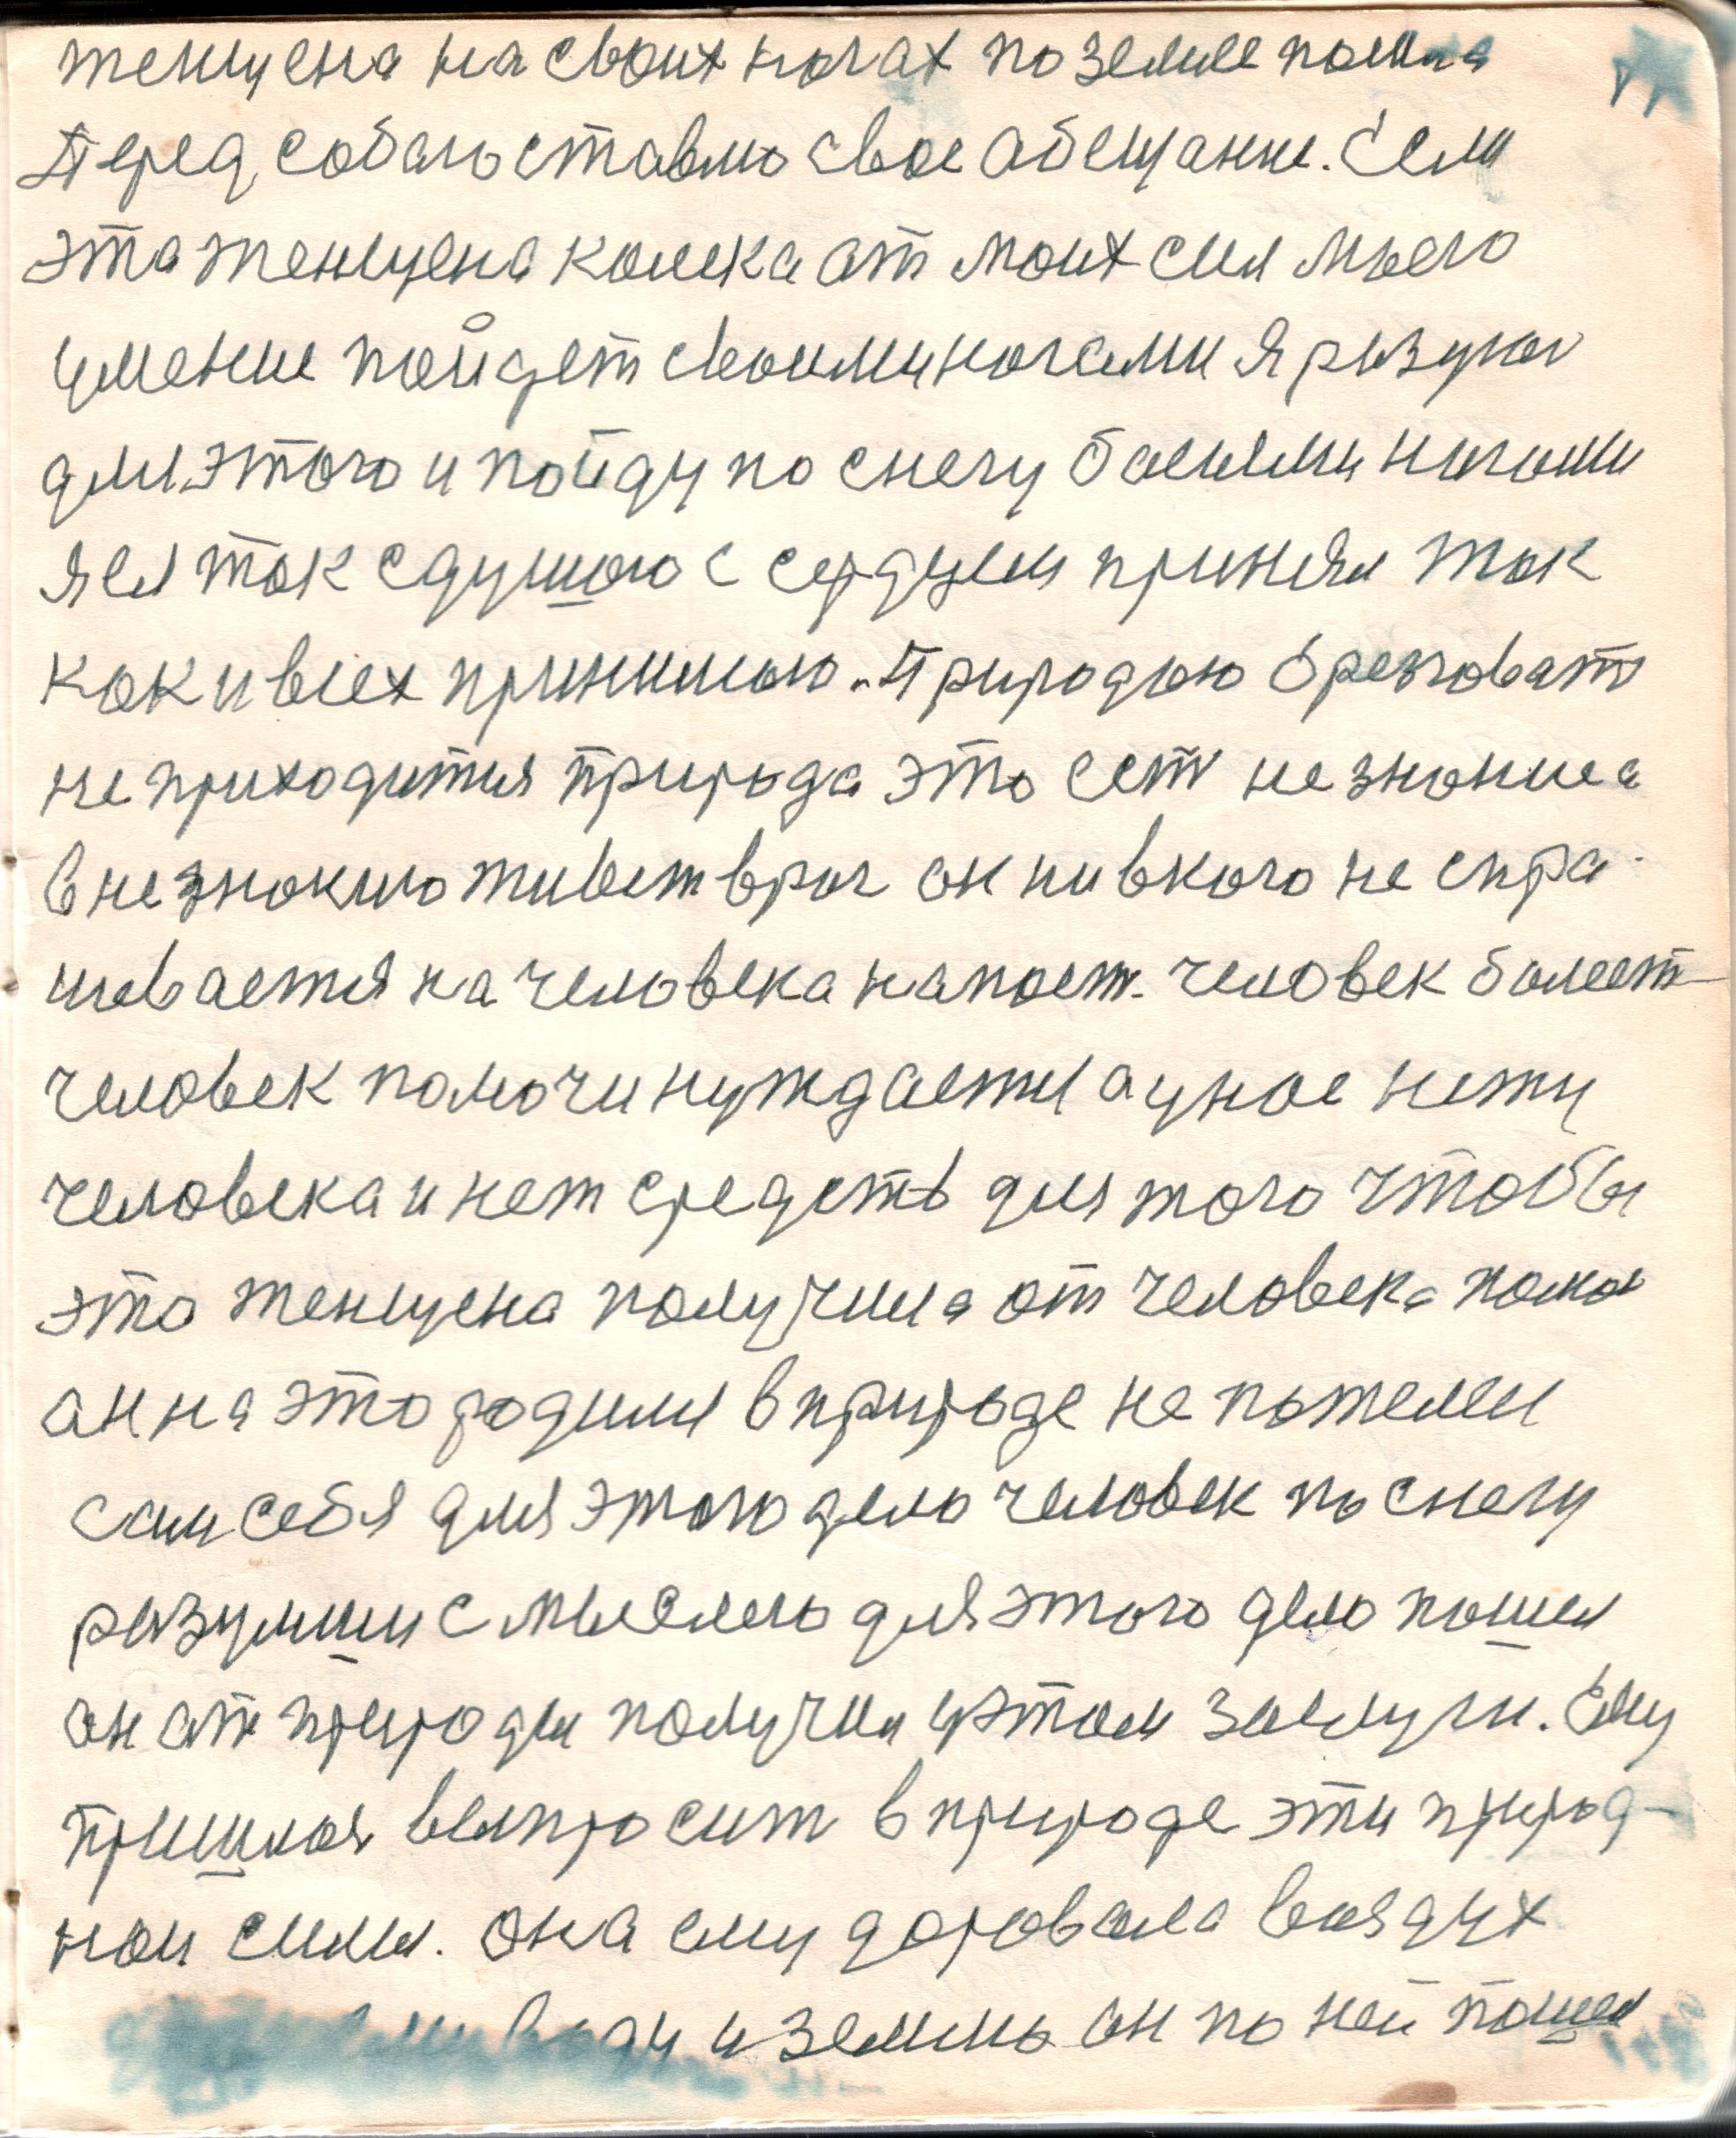 женщена на своих ногах по земле пошла
Перед собаю ставлю свое абещание. Если
эта женщена калека ат моих сил моего
умение пойдет своими ногами я разуюсь
для этого и пойду по снегу босыми ногами
я ея так с душою с сердцем принял так
как и всех принимаю. Природою брезговат
не приходится природа это ест не знание а
в не знакимо живет враг он ни вкого не спра
шевается на человека напоет. человек болеет
человек помочи нуждается а унас нету
человека и нет средств для того чтобы
эта женщена получила от человека помощ
ан на это родился в природе не пожелел
сам себя для этого дела человек по снегу
разумши с мыслею для этого дело пошел
он ат природы получил у этом заслуги. Ему
пришлося выпросит в природе эти природ-
наи силы. Она ему даровала воздух
воду и землю он по ней пошел